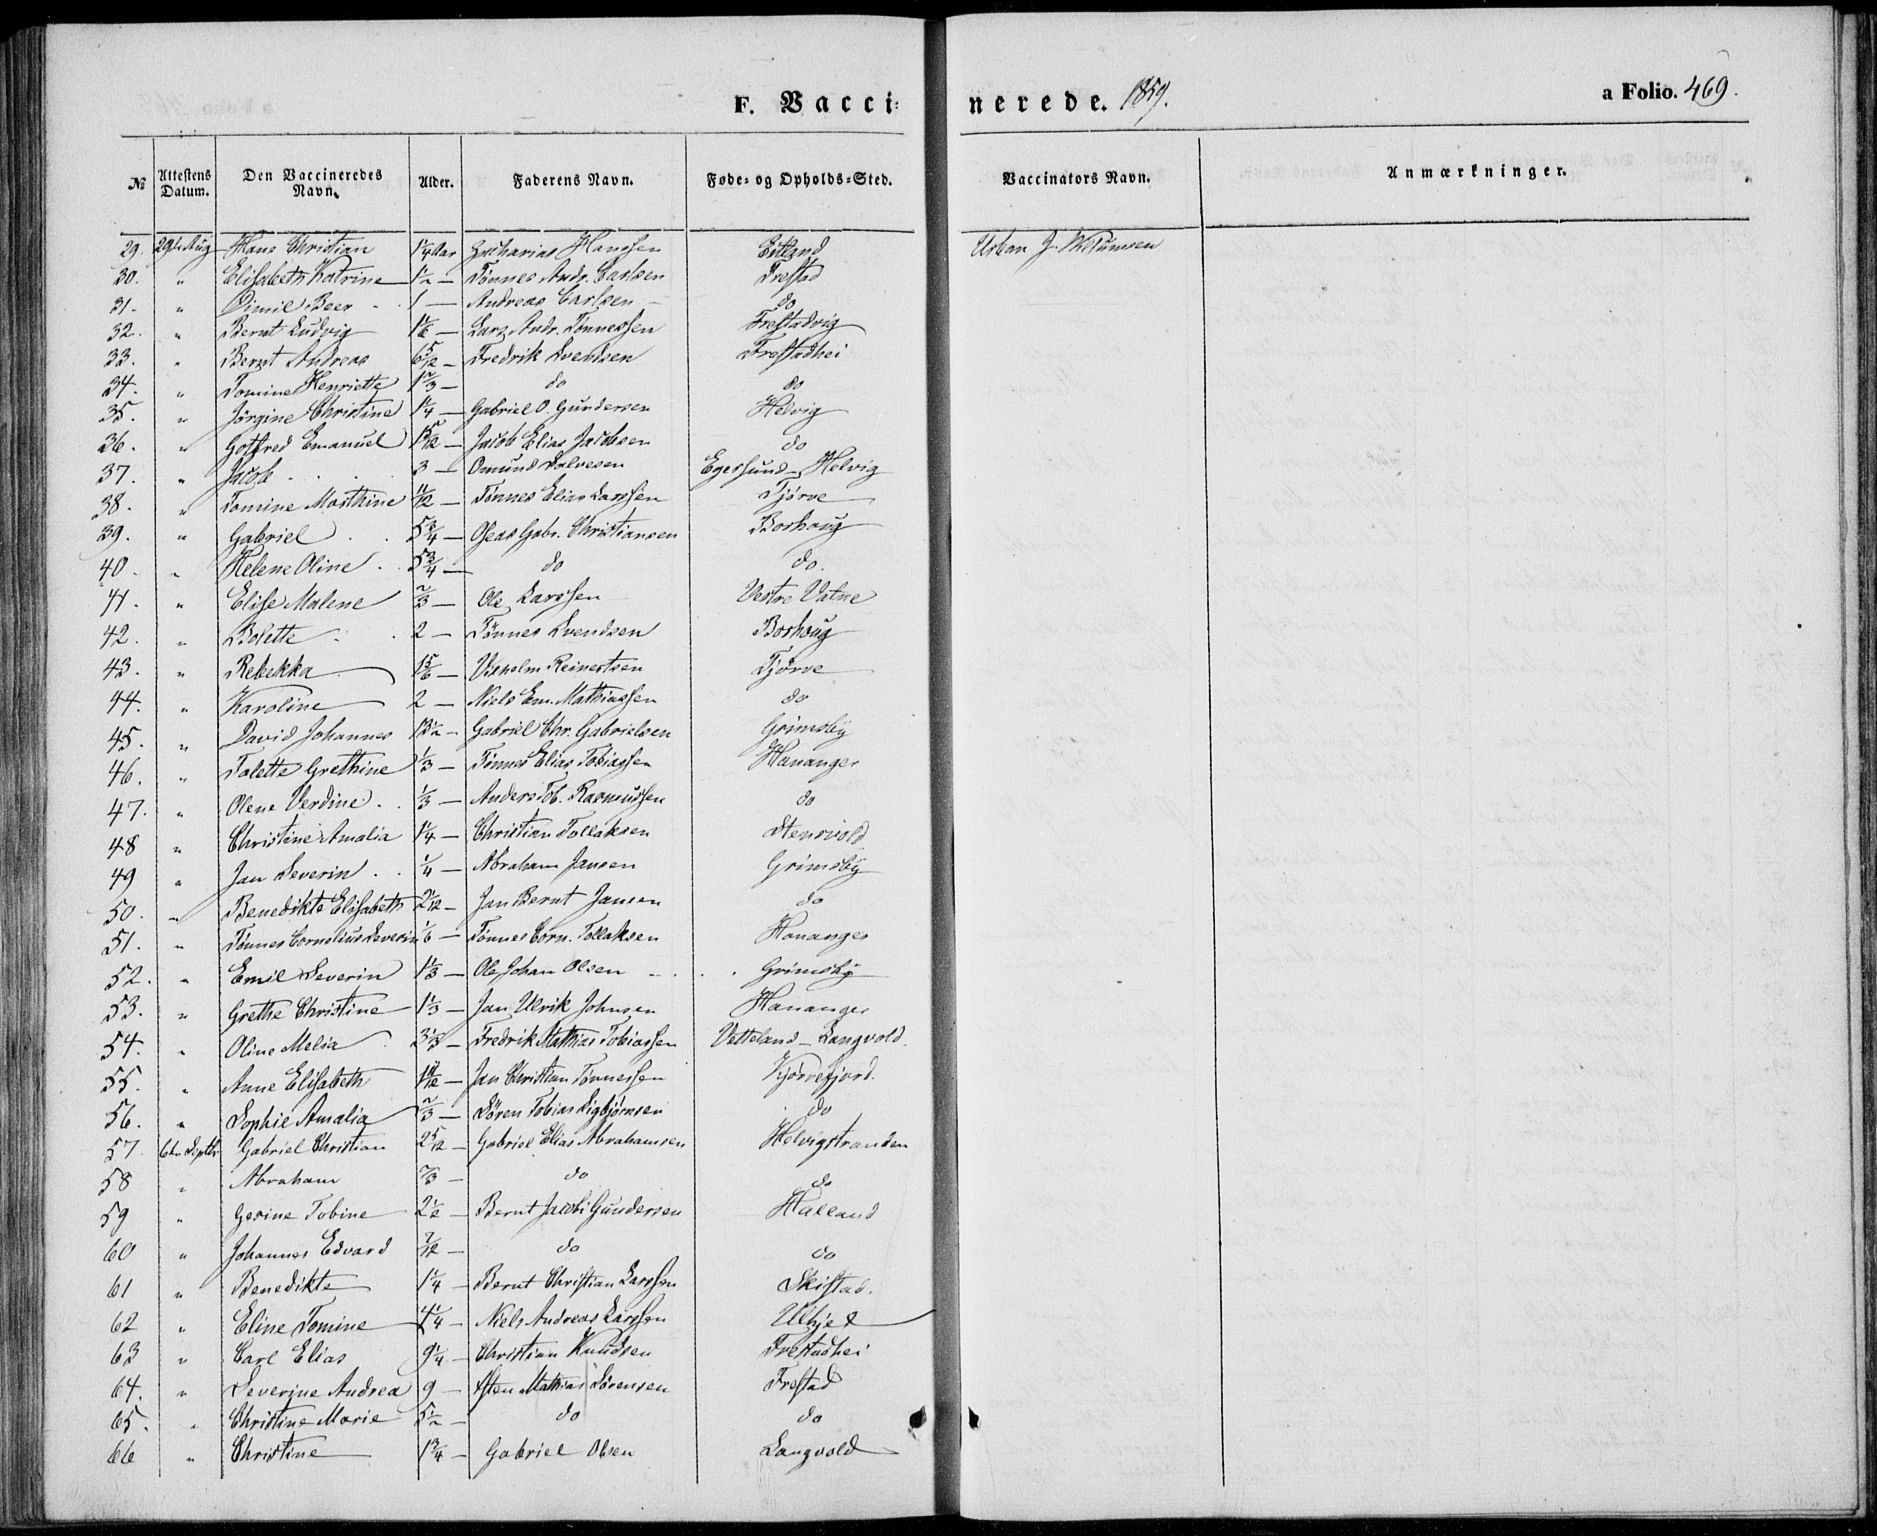 F. Vaccinerede. 1859. a Folio. 469.
№ Attestens Datum. Den Vaccineredes Navn. Alder. Faderens Navn. Føde- og Opholds-Sted. Vaccinators Navn. Anmærkninger.
29. 29de Aug Hans Christian 1 1/4 Aar Zacharias Hanssen Eitland Urban J.
30. " Elisabeth Katrine 1/2 — Tønnes Andr. Carlsen Frestad
31. " Beer 1 — Andreas Carlsen — do
32. " Bernt Ludvig 1 1/6 — Lars Andr. Tønnessen Frestadvig
33. " Bernt Andreas 6 5/12 — Fredrik Svendsen Frestadhei
34. " Tomine Henriette 1 2/3 — do do
35. " Jörgine Christine 1 1/4 — Gabriel O. Gundersen Helvig
36. " Gotfred Emanuel 1 5/12 — Jacob Elias Jacobsen do
37. " Jacob 3 — Omund Salvesen Egersund — Helvig
38. " Tomine Marthine 11/12 — Tönnes Elias Larssen Tjørve
39. " Gabriel 5 3/4 — Oseas Gabr. Christiansen Borhaug
40. " Helene Oline 5 3/4 — do do.
41. " Elise Malene 2/3 — Ole Larssen Vestre Vatne
42. " Bolette 2 — Tönnes Svendsen Borhaug
43. " Rebekka 1 5/6 — Vilhelm Reinertsen Tjørve
44. " Karoline 2 — Niels Em. Mathiassen do
45. " David Johannes 13 1/2 — Gabriel Chr. Gabrielsen Grimsby
46. " Talette Grethine 1/3 — Tønnes Elias Tobiassen Hananger
47. " Olene Verdine 1/3 — Anders Tob. Rasmussen do
48 " Christine Amalia 1 1/4 — Christian Tollaksen Stensvold
49 " Jan Severin 1/4 — Abraham Jansen Grimsby
50. " Benedikte Elisabeth 2 1/12 — Jan Bernt Jansen do
51. " Tønnes Cornelius Severin 1/6 — Tønnes Corn. Tollaksen Hananger
52. " Emil Severin 1 1/3 — Ole Johan Olsen Grimsby
53. " Grethe Christine 1 1/3 — Jan Ulrik Johnsen Hananger
54. " Oline Melia 3 1/3 — Fredrik Mathias Tobiassen Vetteland — Langvold.
55. " Anne Elisabeth — Jan Christian Tønnessen Kjörrefjord.
56. " Sophie Amalia 2/3 — Sören Tobias Sigbjørnsen do
57 6te Septbr Gabriel Christian 2 5/12 — Gabriel Elias Abrahamsen Helvigstranden
58 " Abraham 2/3 — do do
59 " Gesine Tobine 2 1/2 — Bernt Jacob Gundersen Halland
60 " Johannes Edvard 7/12 — do do
61 " Benedikte 1 1/4 — Bernt Christian Larssen Skistad.
62 " Eline Tomine 4 1/4 — Niels Andreas Larssen
63 " Carl Elias 9 1/4 — Christian Knudsen Frestadhei
64. " Severine Andrea 9 — Sten Mathias Sörensen Frestad
65. " Christine Marie 5 1/2 — do do
66 " Christine 1 3/4 — Gabriel Olsen Langvold